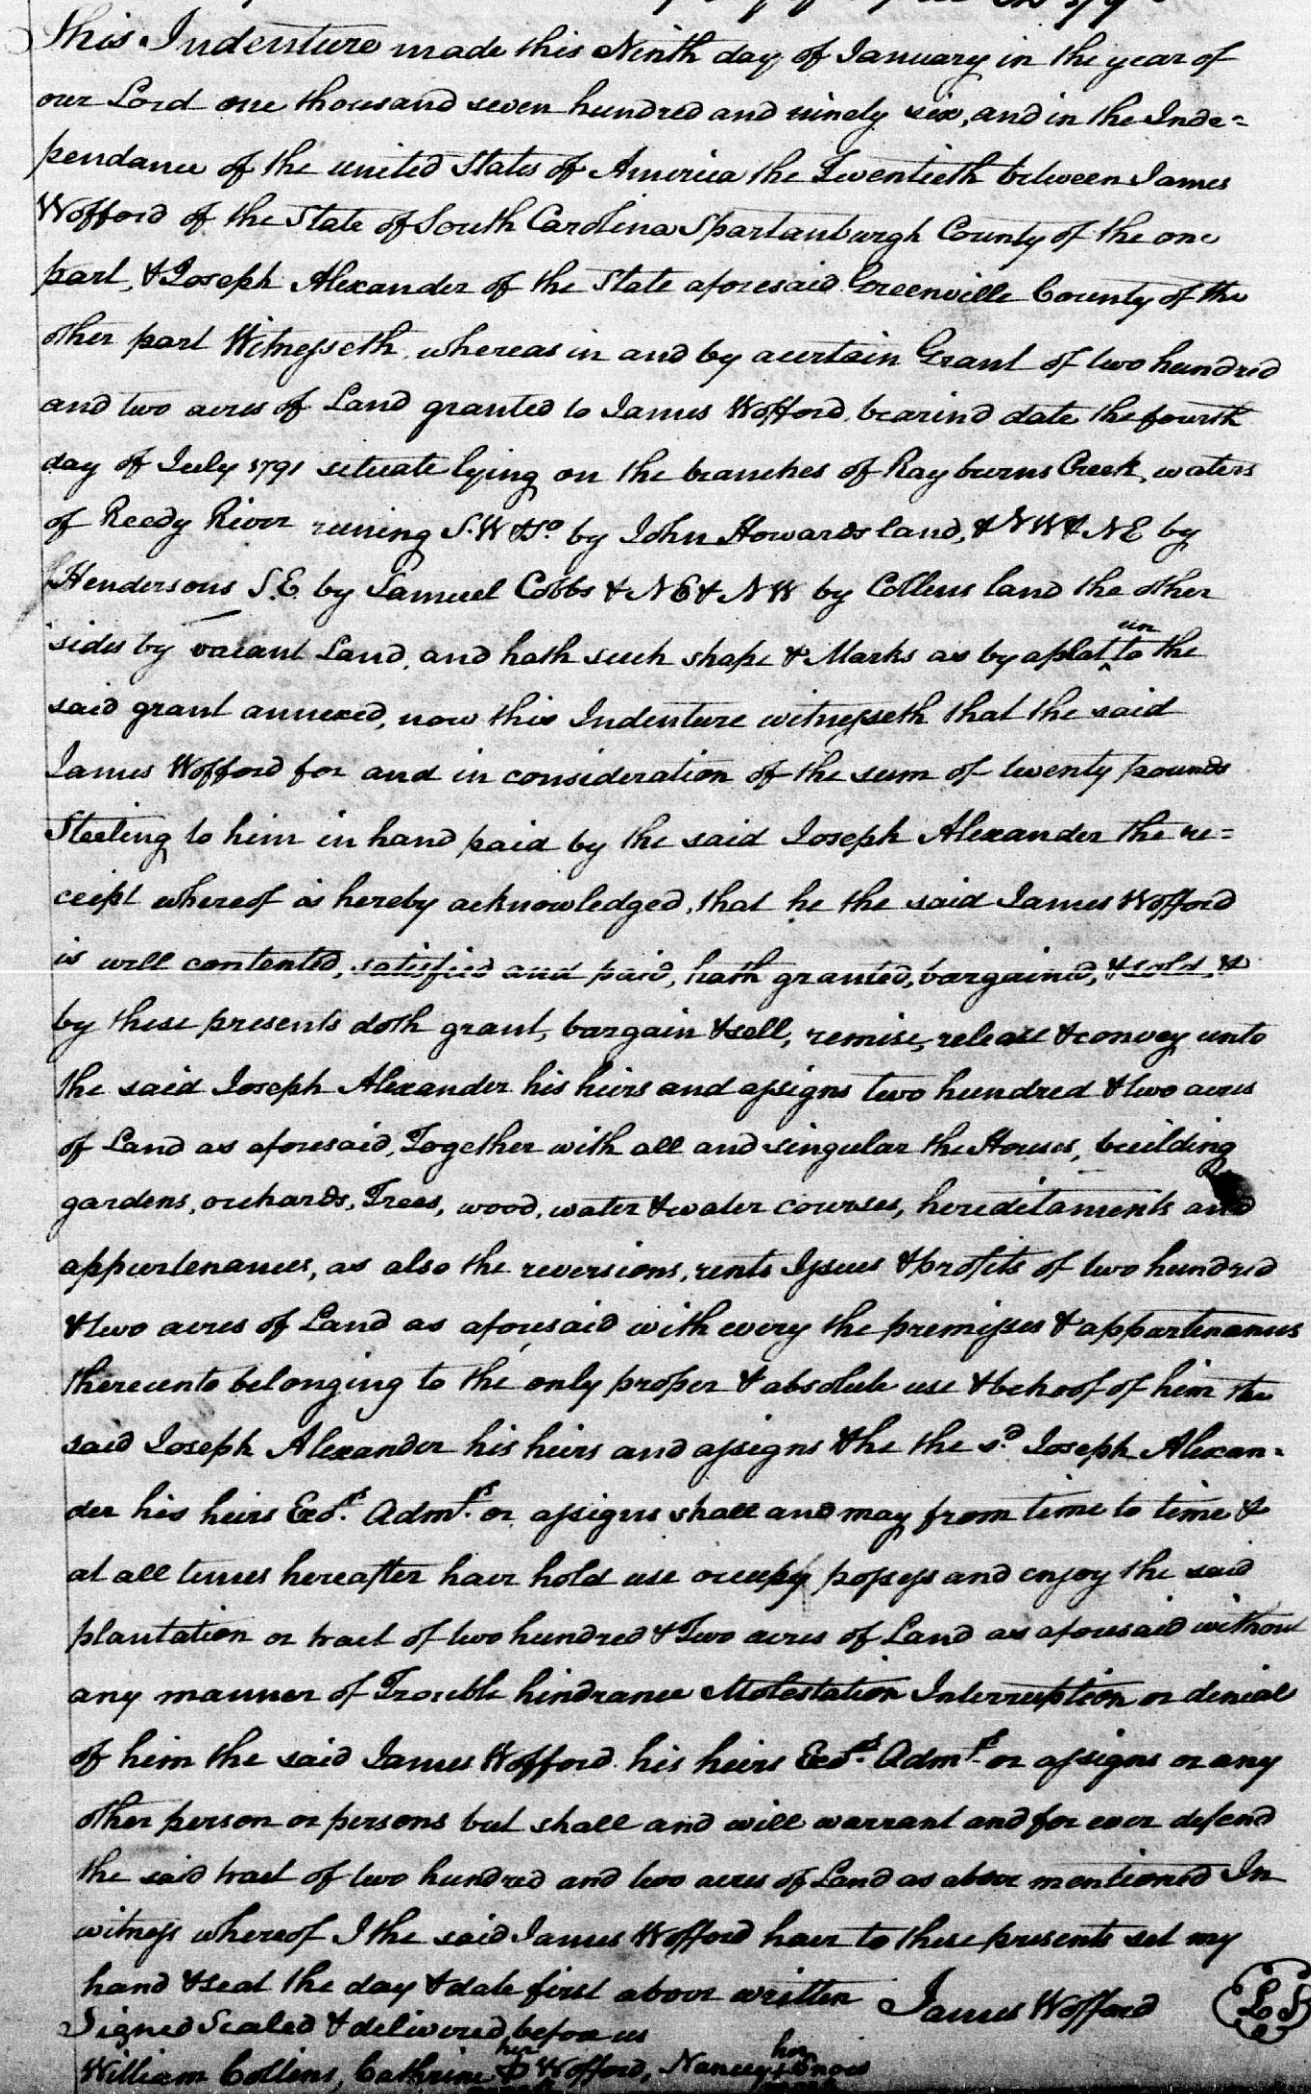 This Indenture made this Ninth day of January in the year of
our Lord one thousand seven hundred and ninety six, and in the Inde=
pendance of the united States of America the Twentieth between James
Wofford of the State of South Carolina Spartanburgh County of the one
part, & Joseph Alexander of the State aforesaid Greenville County of the
other part Witnesseth, whereas in and by a certain Grant of two hundred
and two acres of Land granted to James Wofford, bearind date the fourth
day of July 1791 situate lying on the branches of Rayburns Creek, waters
of Reedy River runing S.W & So. by John Howards land, & NW & NE by
Hendersons S.E. by Samuel Cobbs & NE & NW by Collens land the other
sides by vacant Land, and hath such shape & Marks as by a plat unto the
said grant annexed, now this Indenture witnesseth that the said
James Wofford for and in consideration of the sum of twenty pounds
Sterling to him in hand paid by the said Joseph Alexander the re=
ceipt whereof is hereby acknowledged, that he the said James Wofford
is well contented, satisfied and paid, hath granted, bargained, & sold &
by these presents doth grant, bargain & sell, remise, release & convey unto
the said Joseph Alexander his heirs and assigns two hundred & two acres
of Land as aforesaid, Together with all and singular the Houses, building
gardens, orchards, Trees, wood, water & water courses, hereditaments and
appurtenances, as also the reversions, rents Issues & profits of two hundred
& two acres of Land as aforesaid with every the premisses & appartenances
thereunto belonging to the only proper & absolute use & behoof of him the
said Joseph Alexander his heirs and assigns & he the the sd. Joseph Alexan=
der his heirs Exors. Admrs. or assigns shall and may from time to time &
at all times hereafter have hold use occupy possess and enjoy the said
plantation or tract of two hundred & Two acres of Land as aforesaid without
any manner of Trouble hindrance Molestation Interruption or denial
of him the said James Wofford his heirs Exors. Admrs. or assigns or any
other person or persons but shall and will warrant and for ever defend
the said tract of two hundred and two acres of Land as above mentioned In
witness whereof I the said James Wofford have to these presents set my
hand & seal the day & date first above written James Wofford LS
Signed Sealed & delivered before us
William Collins, Cathrine her Wofford, Nancey her